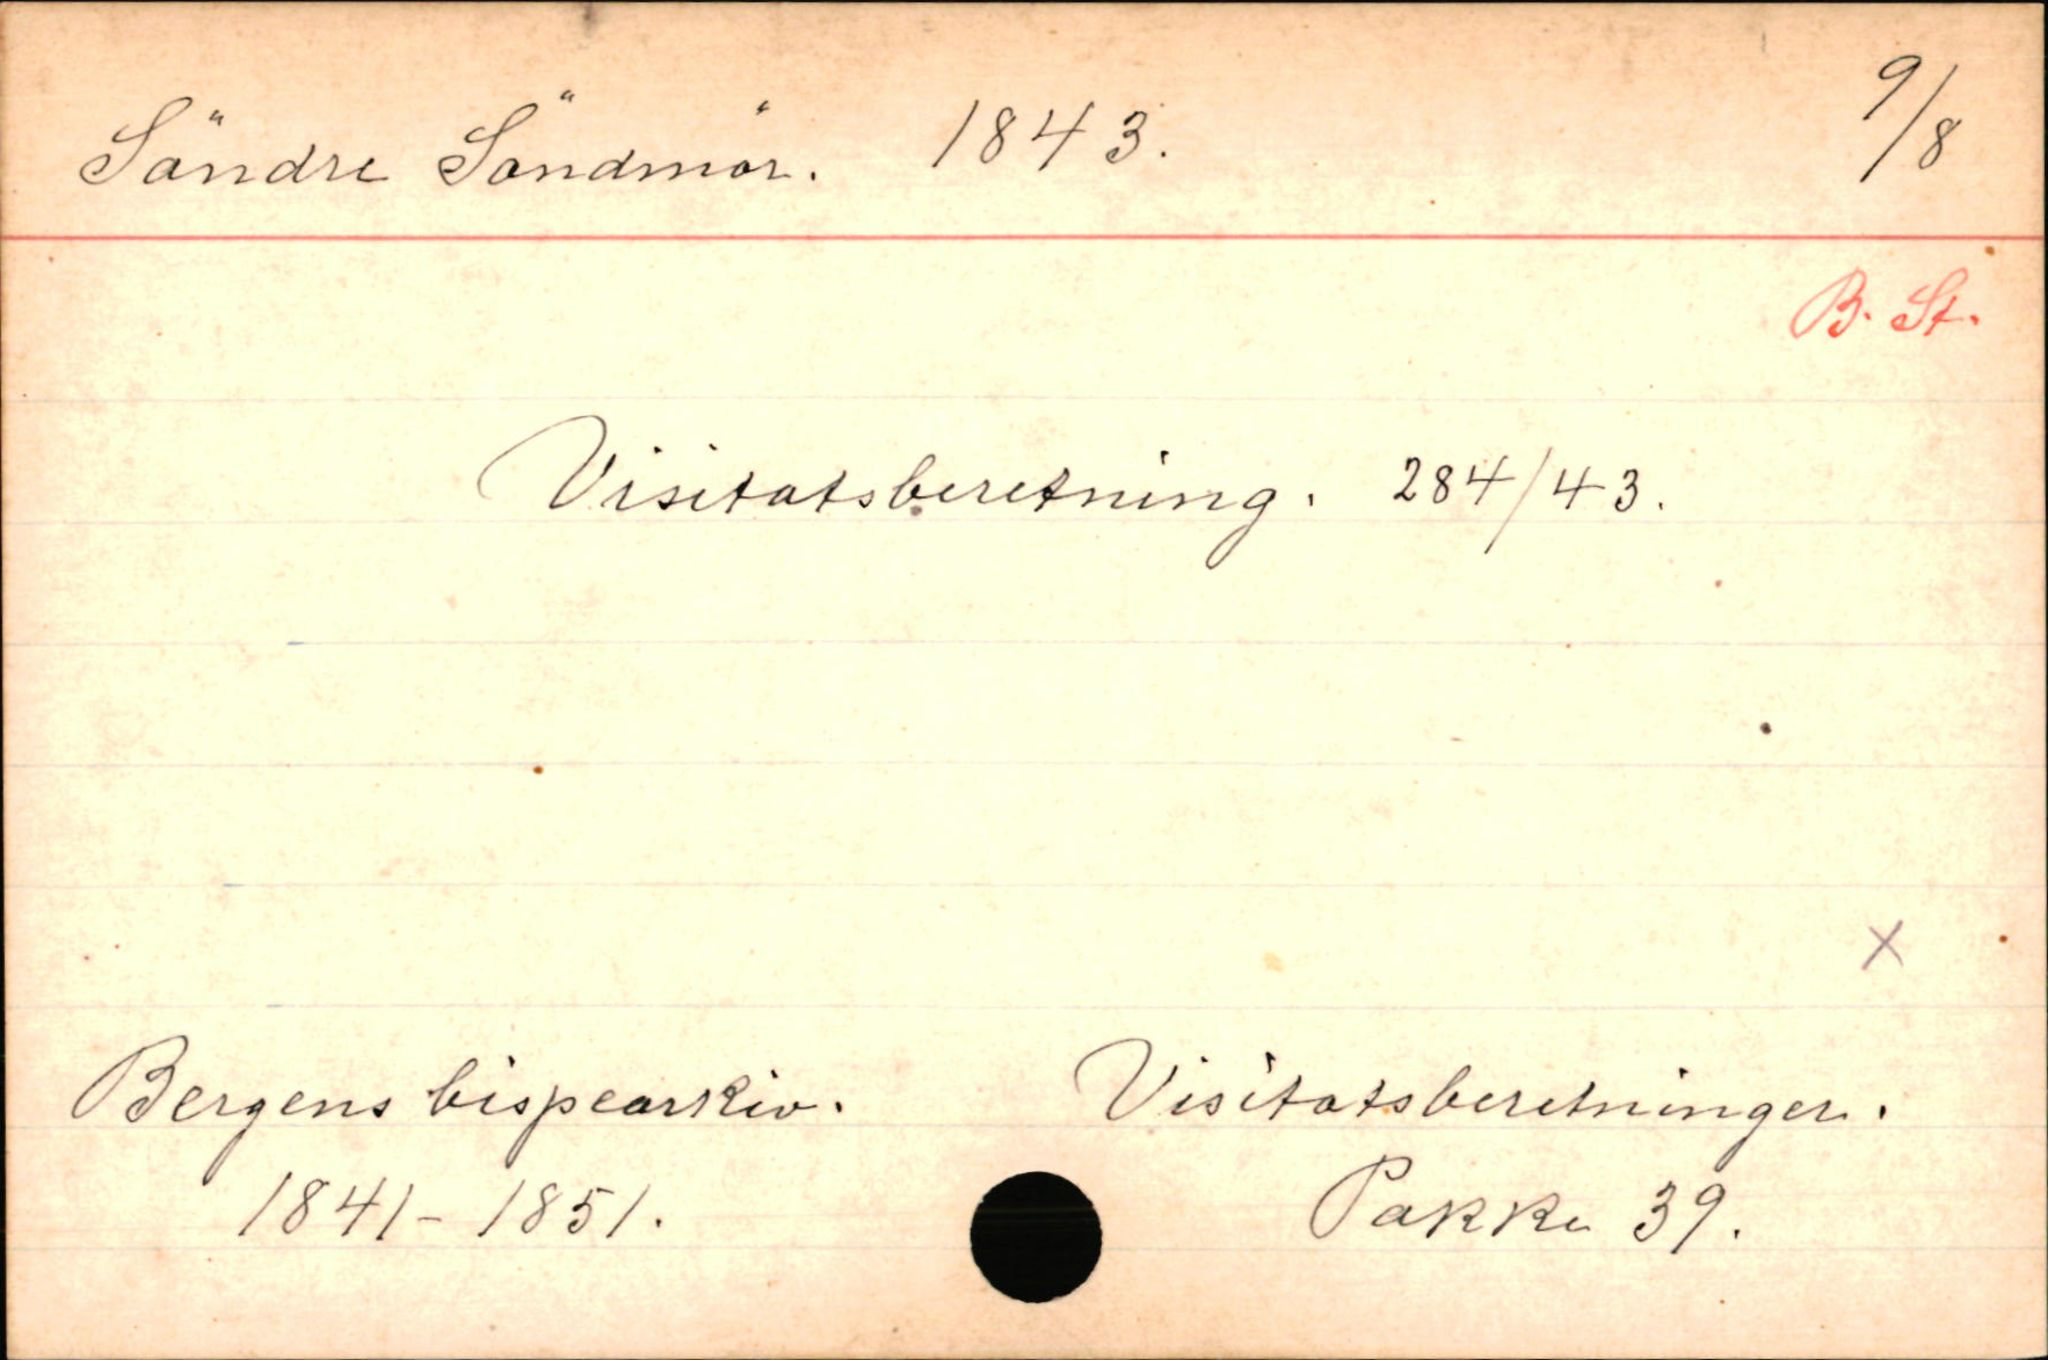 Söndre Söndmör. 1843. 9/8
B. St.
Visitatsberetning. 284/43.
X
Bergens bispearkiv. Visitatsberetninger.
1841-1851. Pakke 39.